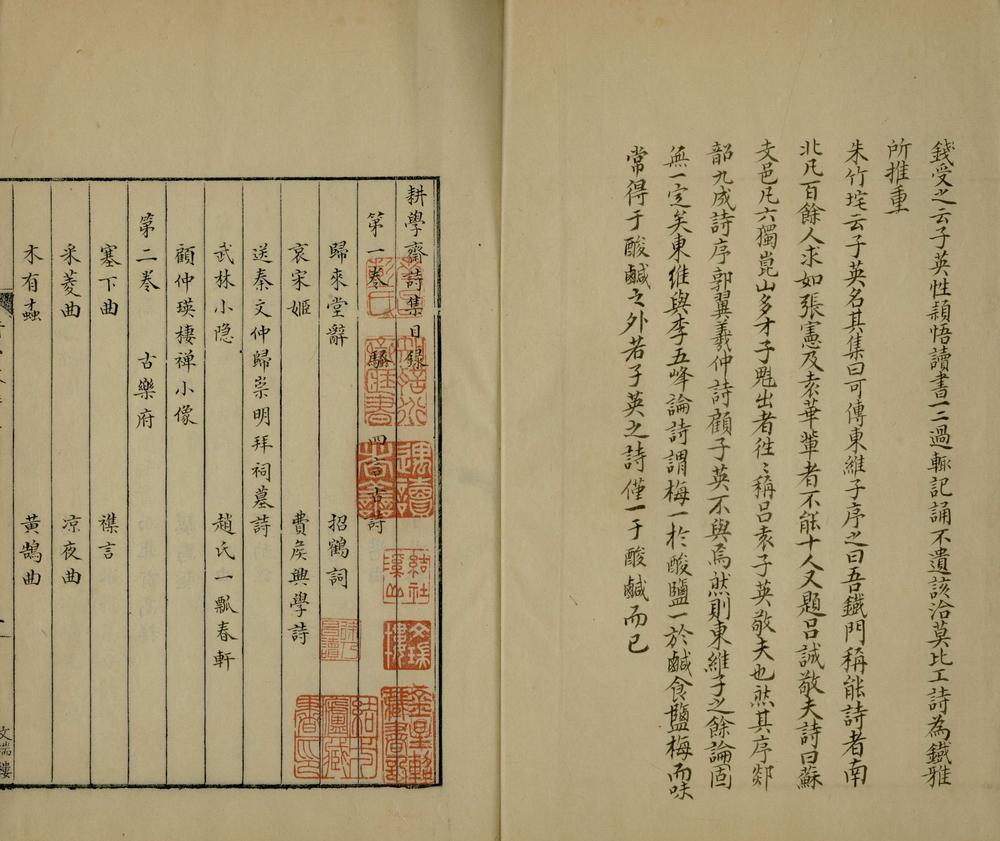 錢受之云子英性穎悟讀書一二過輒記誦不遺該洽莫比工詩為鐵雅
所推重
朱竹垞云子英名其集曰可傳東維子序之曰吾鐵門稱能詩者南
北凡百餘人求如張憲及袁華輩者不能十人又題呂誠敬夫詩曰蘇
支邑凡六獨崑山多才子覬出者徃〻稱呂袁子英敬夫也然其序郯
韶九成詩序郭翼羲仲詩顧子英不與焉然則東維子之餘論固
無一定矣東維與李五峰論詩謂梅一於酸鹽一於鹹食鹽梅而味
常得于酸鹹之外若子英之詩僅一于酸鹹而已
耕學齋詩集目録
第一卷 騷 四言古詩
歸來堂辭 招鶴詞
哀宋姬 費矦興學詩
送秦文仲歸崇明拜祠墓詩
武林小隐 趙氏一瓢春軒
顧仲瑛棲禅小像
第二卷 古樂府
塞下曲 襍言
采菱曲 凉夜曲
木有蟲 黃鵠曲
文瑞樓
結社溪山
文瑞樓
金星軺藏書記